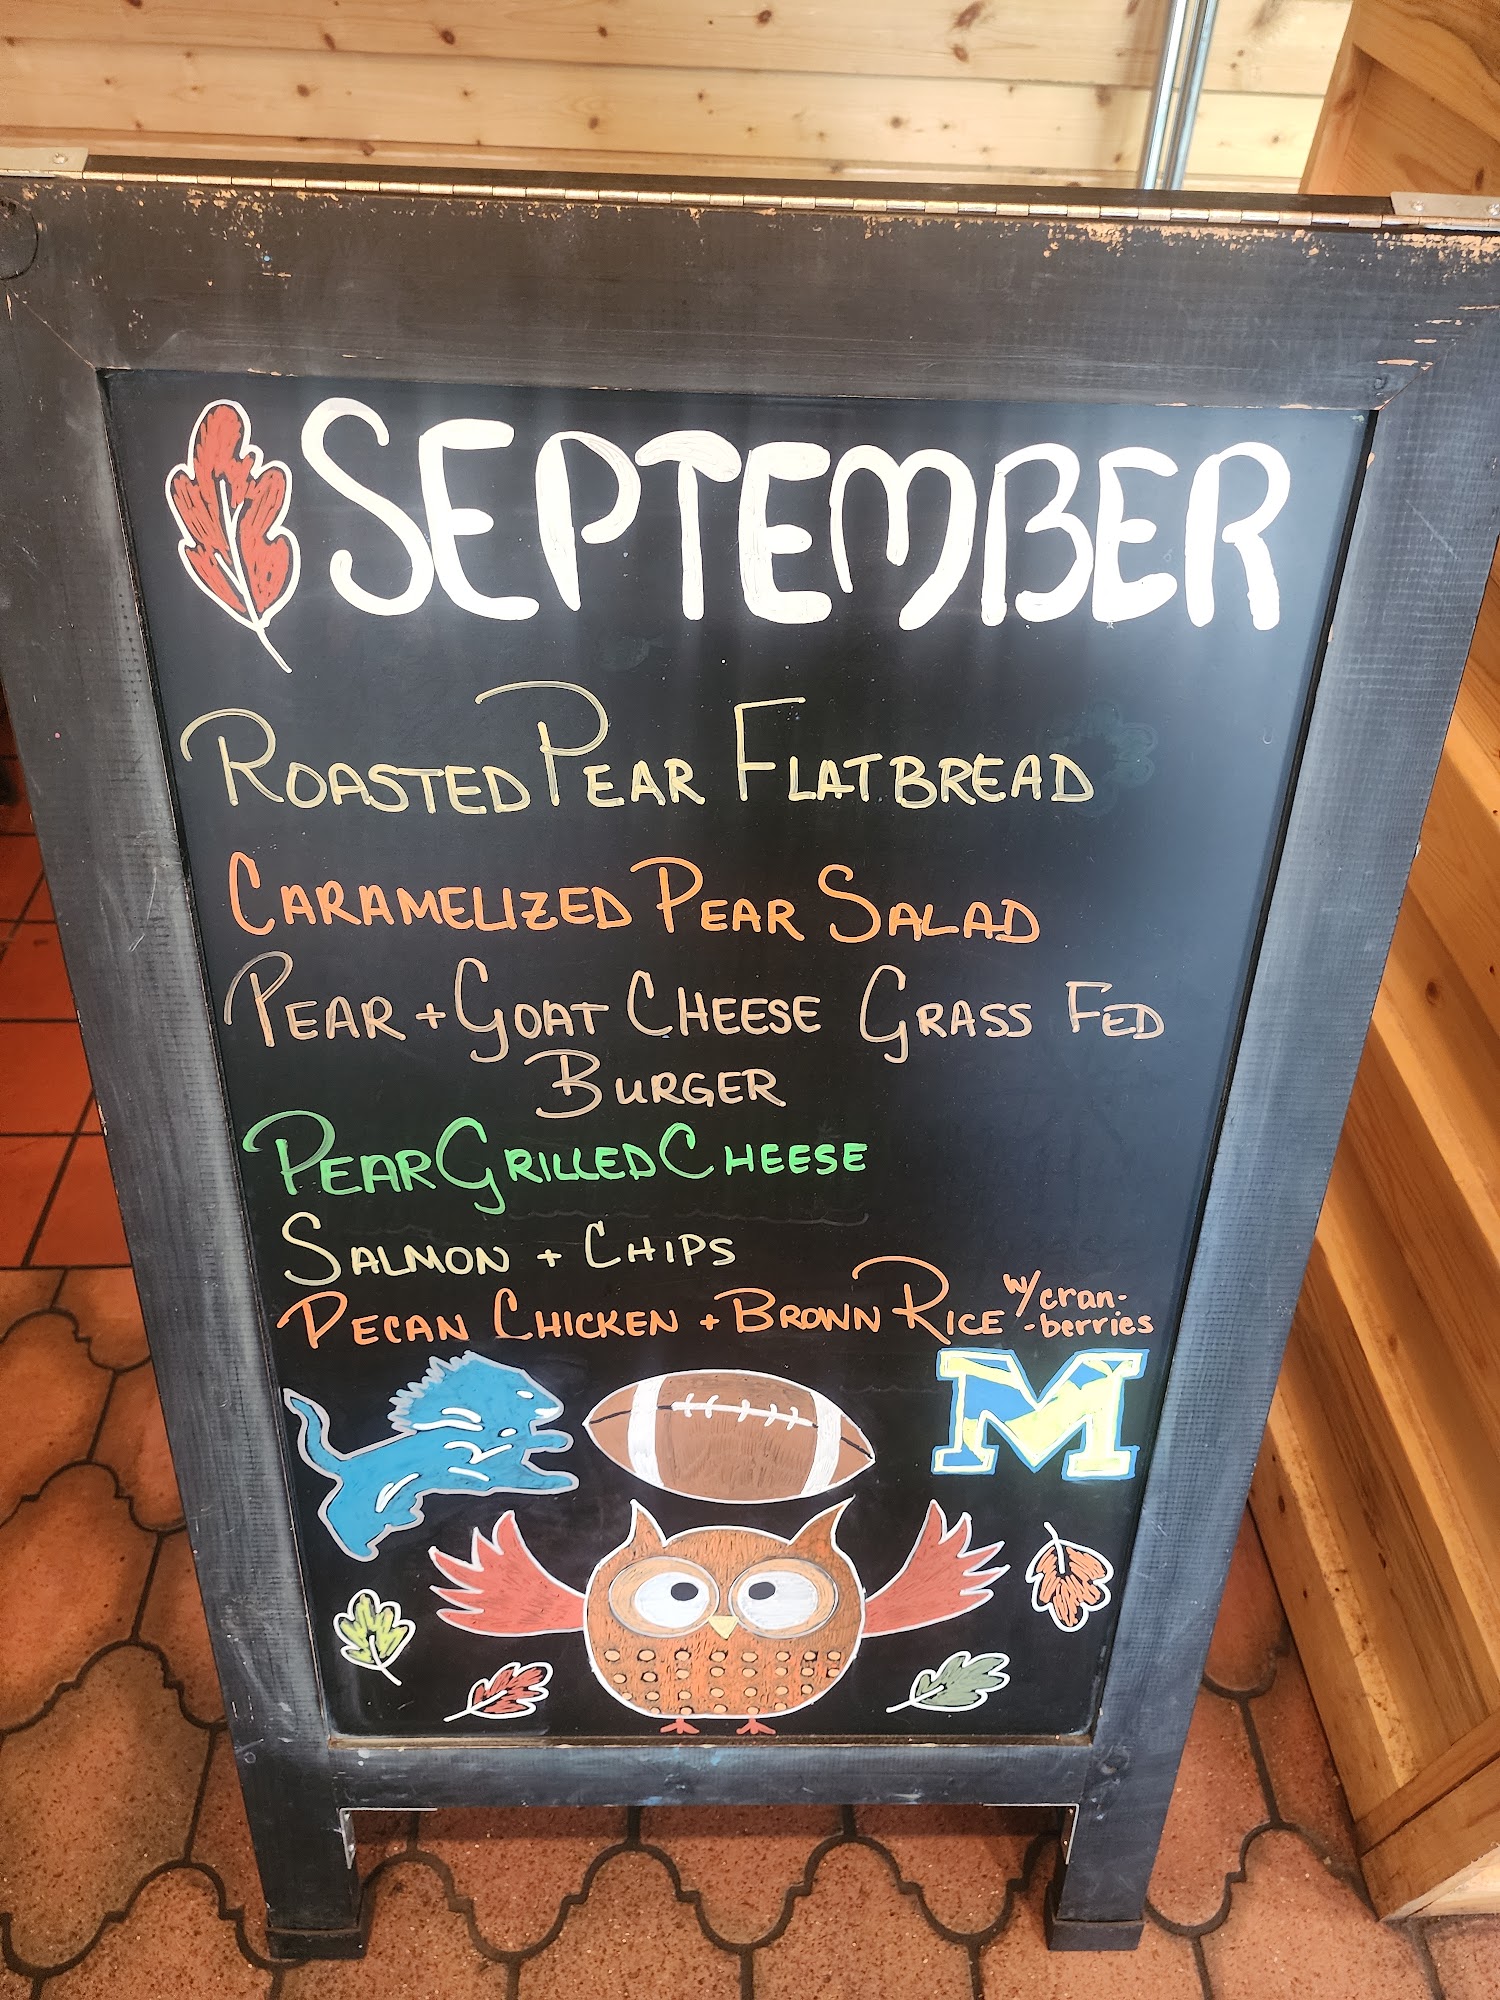 SEPTEMBER
ROASTED PEAR FLATBREAD
CARAMELIZED PEAR SALAD
PEAR + GOAT CHEESE GRASS FED
BURGER
PEAR GRILLED CHEESE
SALMON + CHIPS
PECAN CHICKEN + BROWN RICE w/ cran-
-berries
M